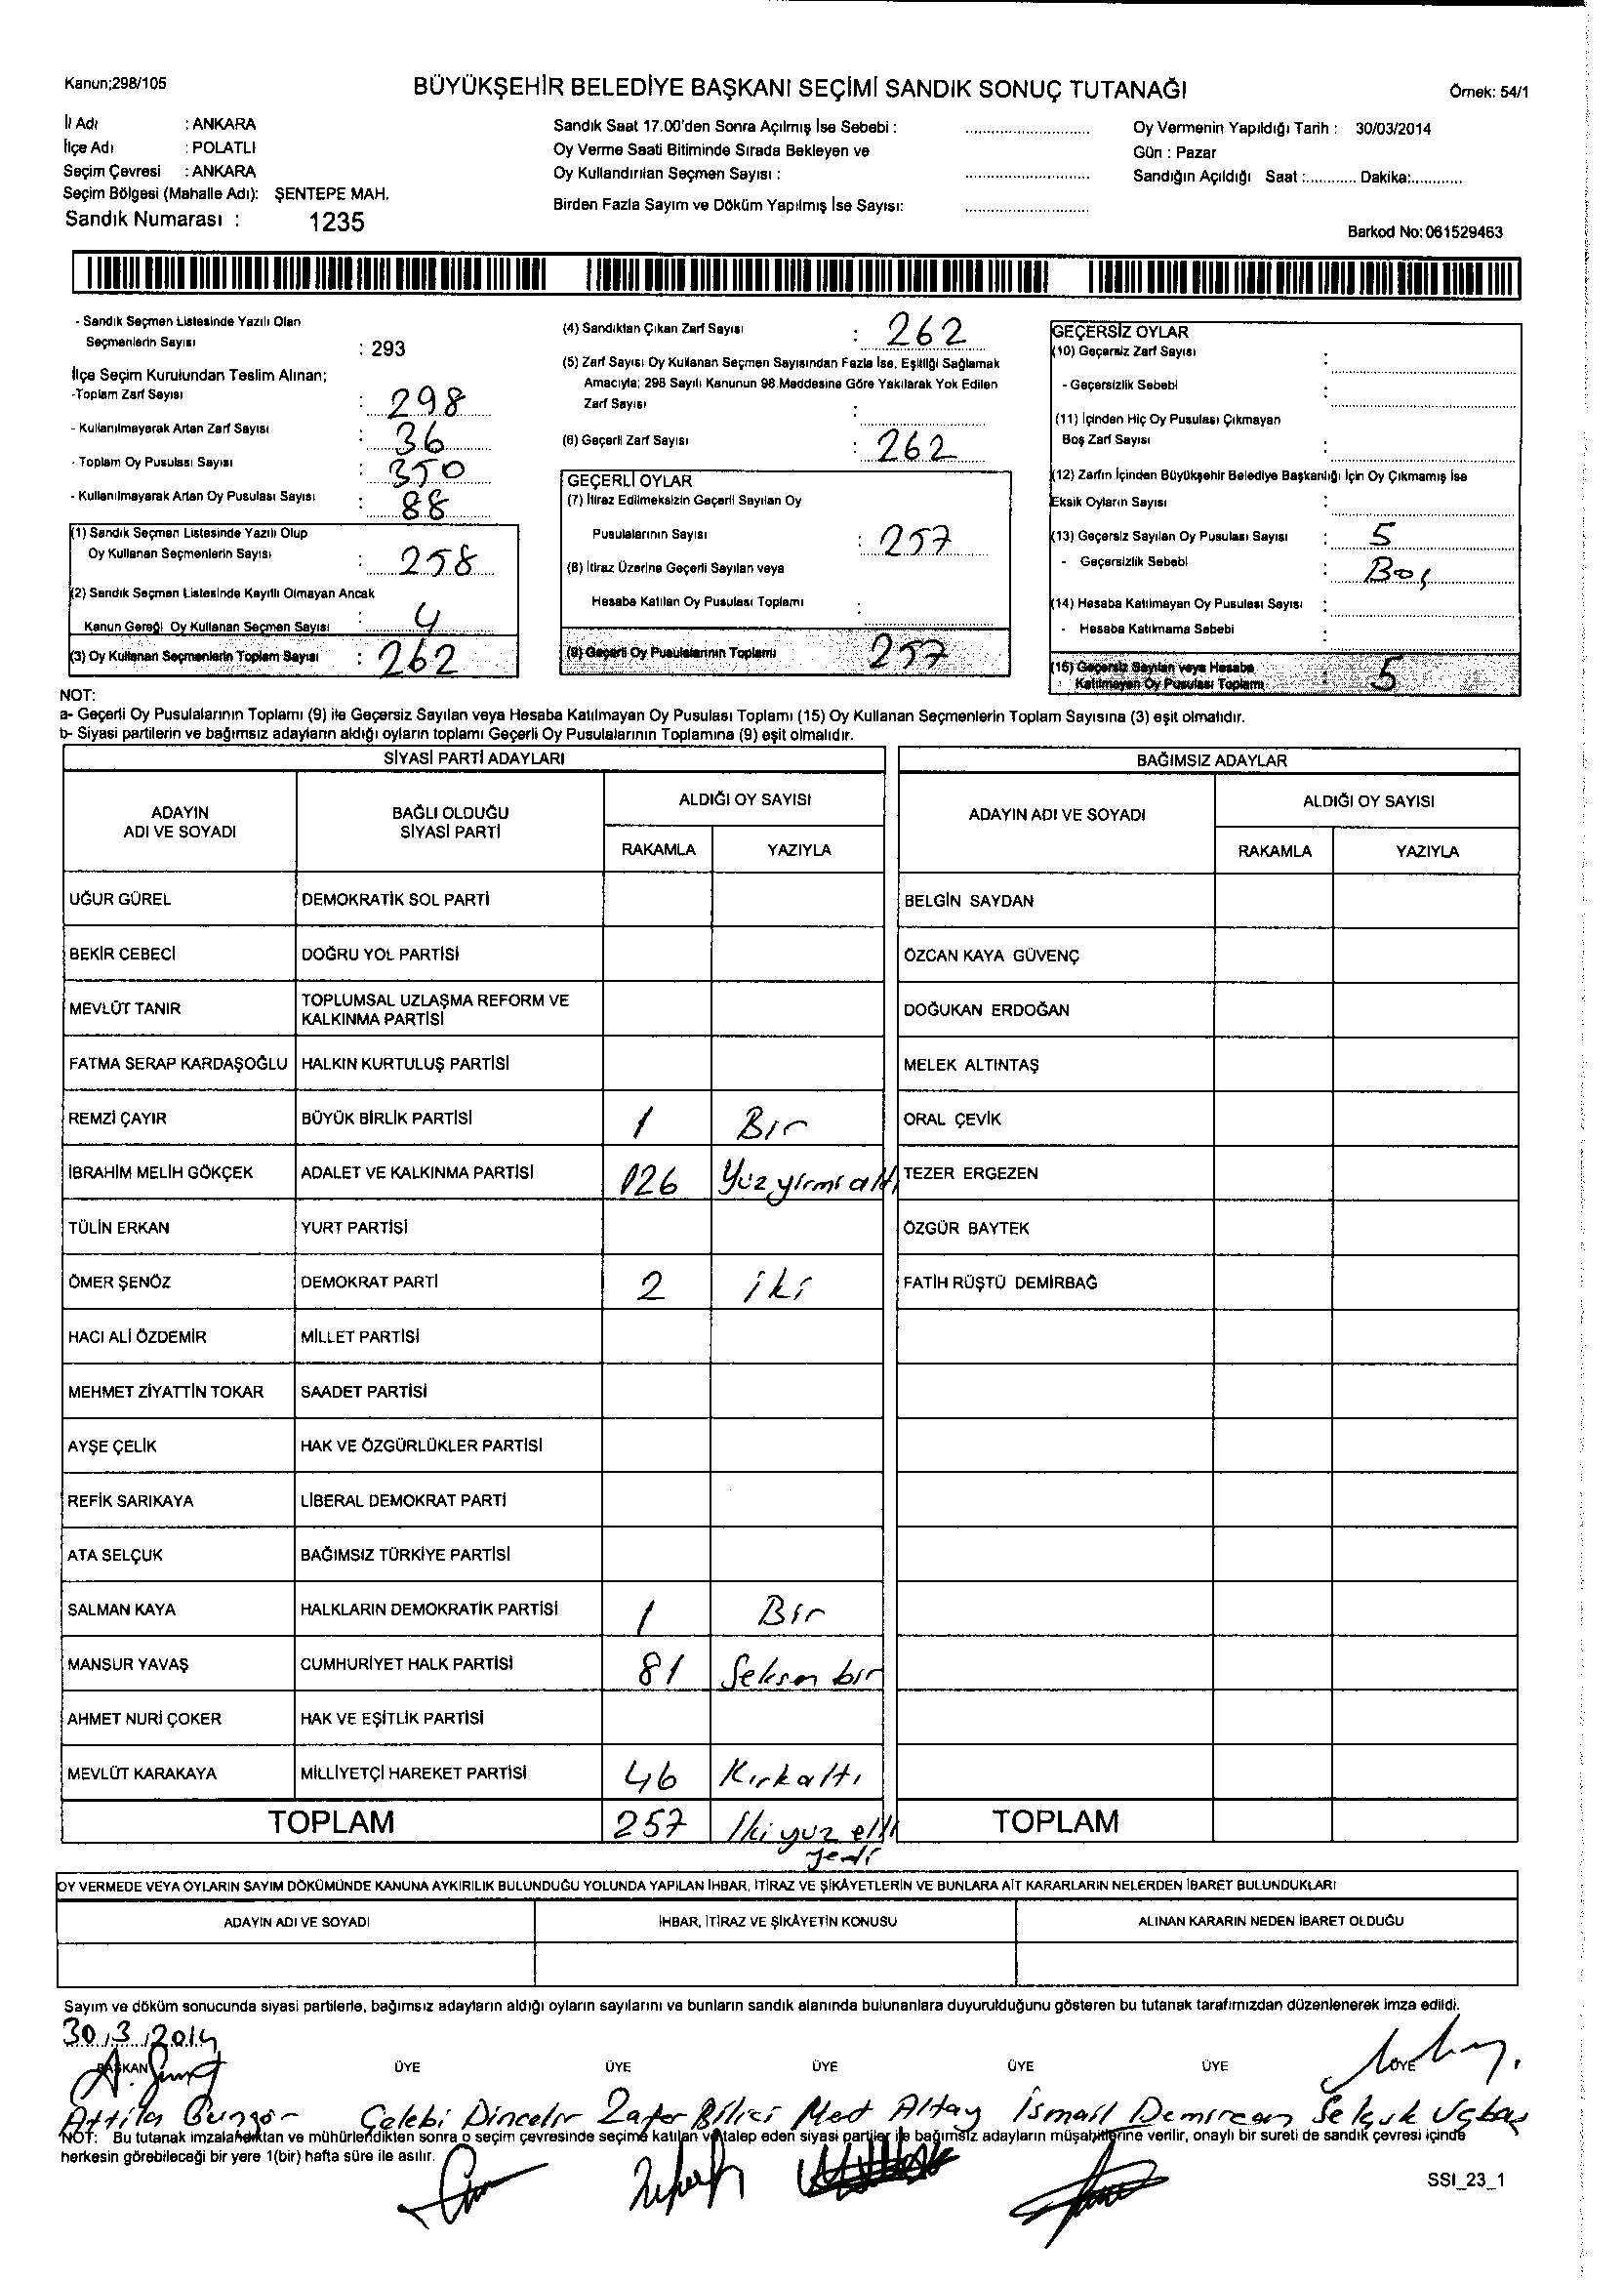 Kanun;298/105
BÜYÜKŞEHİR BELEDİYE BAŞKANI SEÇİMİ SANDIK SONUÇ TUTANAĞI
Örnek: 54/1
İl Adı : ANKARA
İlçe Adı : POLATLI
Seçim Çevresi : ANKARA
Seçim Bölgesi (Mahalle Adı): ŞENTEPE MAH.
Sandık Numarası : 1235
Sandık Saat 17.00'den Sonra Açılmış İse Sebebi :
Oy Verme Saati Bitiminde Sırada Bekleyen ve
Oy Kullandırılan Seçmen Sayısı :
Birden Fazla Sayım ve Döküm Yapılmış İse Sayısı:
Oy Vermenin Yapıldığı Tarih : 30/03/2014
Gün : Pazar
Sandığın Açıldığı Saat :........... Dakika:............
Barkod No: 061529463
- Sandık Seçmen Listesinde Yazılı Olan
Seçmenlerin Sayısı : 293
İlçe Seçim Kurulundan Teslim Alınan;
-Toplam Zarf Sayısı : 298
- Kullanılmayarak Artan Zarf Sayısı : 36
- Toplam Oy Pusulası Sayısı : 350
- Kullanılmayarak Artan Oy Pusulası Sayısı : 88
(1) Sandık Seçmen Listesinde Yazılı Olup
Oy Kullanan Seçmenlerin Sayısı : 258
(2) Sandık Seçmen Listesinde Kayıtlı Olmayan Ancak
Kanun Gereği Oy Kullanan Seçmen Sayısı : 4
(3) Oy Kullanan Seçmenlerin Toplam Sayısı : 262
(4) Sandıktan Çıkan Zarf Sayısı : 262
(5) Zarf Sayısı Oy Kullanan Seçmen Sayısından Fazla İse, Eşitliği Sağlamak
Amacıyla; 298 Sayılı Kanunun 98.Maddesine Göre Yakılarak Yok Edilen
Zarf Sayısı :
(6) Geçerli Zarf Sayısı : 262
GEÇERLİ OYLAR
(7) İtiraz Edilmeksizin Geçerli Sayılan Oy
Pusulalarının Sayısı : 257
(8) İtiraz Üzerine Geçerli Sayılan veya
Hesaba Katılan Oy Pusulası Toplamı :
(9) Geçerli Oy Pusulalarının Toplamı 257
GEÇERSİZ OYLAR
(10) Geçersiz Zarf Sayısı :
- Geçersizlik Sebebi :
(11) İçinden Hiç Oy Pusulası Çıkmayan
Boş Zarf Sayısı :
(12) Zarfın İçinden Büyükşehir Belediye Başkanlığı İçin Oy Çıkmamış İse
Eksik Oyların Sayısı :
(13) Geçersiz Sayılan Oy Pusulası Sayısı : 5
- Geçersizlik Sebebi : Boş
(14) Hesaba Katılmayan Oy Pusulası Sayısı :
- Hesaba Katılmama Sebebi :
(15) Geçersiz Sayılan veya Hesaba
Katılmayan Oy Pusulası Toplamı : 5
NOT:
a- Geçerli Oy Pusulalarının Toplamı (9) ile Geçersiz Sayılan veya Hesaba Katılmayan Oy Pusulası Toplamı (15) Oy Kullanan Seçmenlerin Toplam Sayısına (3) eşit olmalıdır.
b- Siyasi partilerin ve bağımsız adayların aldığı oyların toplamı Geçerli Oy Pusulalarının Toplamına (9) eşit olmalıdır.
SİYASİ PARTİ ADAYLARI
ADAYIN ADI VE SOYADI
BAĞLI OLDUĞU SİYASİ PARTİ
ALDIĞI OY SAYISI
RAKAMLA YAZIYLA
UĞUR GÜREL DEMOKRATİK SOL PARTİ
BEKİR CEBECİ DOĞRU YOL PARTİSİ
MEVLÜT TANIR TOPLUMSAL UZLAŞMA REFORM VE
KALKINMA PARTİSİ
FATMA SERAP KARDAŞOĞLU HALKIN KURTULUŞ PARTİSİ
REMZİ ÇAYIR BÜYÜK BİRLİK PARTİSİ 1 Bir
İBRAHİM MELİH GÖKÇEK ADALET VE KALKINMA PARTİSİ 126 Yüz yirmi altı
TÜLİN ERKAN YURT PARTİSİ
ÖMER ŞENÖZ DEMOKRAT PARTİ 2 iki
HACI ALİ ÖZDEMİR MİLLET PARTİSİ
MEHMET ZİYATTİN TOKAR SAADET PARTİSİ
AYŞE ÇELİK HAK VE ÖZGÜRLÜKLER PARTİSİ
REFİK SARIKAYA LİBERAL DEMOKRAT PARTİ
ATA SELÇUK BAĞIMSIZ TÜRKİYE PARTİSİ
SALMAN KAYA HALKLARIN DEMOKRATİK PARTİSİ 1 Bir
MANSUR YAVAŞ CUMHURİYET HALK PARTİSİ 81 Seksen bir
AHMET NURİ ÇOKER HAK VE EŞİTLİK PARTİSİ
MEVLÜT KARAKAYA MİLLİYETÇİ HAREKET PARTİSİ 46 Kırkaltı
TOPLAM 257 İkiyüz elli
yedi
BAĞIMSIZ ADAYLAR
ADAYIN ADI VE SOYADI
ALDIĞI OY SAYISI
RAKAMLA YAZIYLA
BELGİN SAYDAN
ÖZCAN KAYA GÜVENÇ
DOĞUKAN ERDOĞAN
MELEK ALTINTAŞ
ORAL ÇEVİK
TEZER ERGEZEN
ÖZGÜR BAYTEK
FATİH RÜŞTÜ DEMİRBAĞ
TOPLAM
OY VERMEDE VEYA OYLARIN SAYIM DÖKÜMÜNDE KANUNA AYKIRILIK BULUNDUĞU YOLUNDA YAPILAN İHBAR, İTİRAZ VE ŞİKÂYETLERİN VE BUNLARA AİT KARARLARIN NELERDEN İBARET BULUNDUKLARI
ADAYIN ADI VE SOYADI İHBAR, İTİRAZ VE ŞİKÂYETİN KONUSU ALINAN KARARIN NEDEN İBARET OLDUĞU
Sayım ve döküm sonucunda siyasi partilerle, bağımsız adayların aldığı oyların sayılarını ve bunların sandık alanında bulunanlara duyurulduğunu gösteren bu tutanak tarafımızdan düzenlenerek imza edildi.
30.3.2014
BAŞKAN ÜYE ÜYE ÜYE ÜYE ÜYE ÜYE
Attila Güngör Çelebi Dincelir Zafer Bilici Altay İsmail Demircan Selçuk
NOT: Bu tutanak imzalandıktan ve mühürlendikten sonra o seçim çevresinde seçime katılan ve talep eden siyasi partiler ile bağımsız adayların müşahitlerine verilir, onaylı bir sureti de sandık çevresi içinde
herkesin görebileceği bir yere 1(bir) hafta süre ile asılır.
SSI_23_1